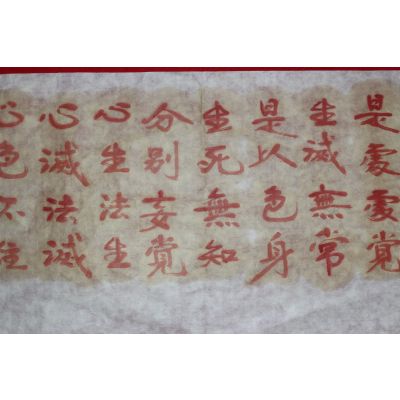 是處虛覺
生滅無常
是以色身
生死無知
分別妄覺
心生法生
心滅法滅
心色不住